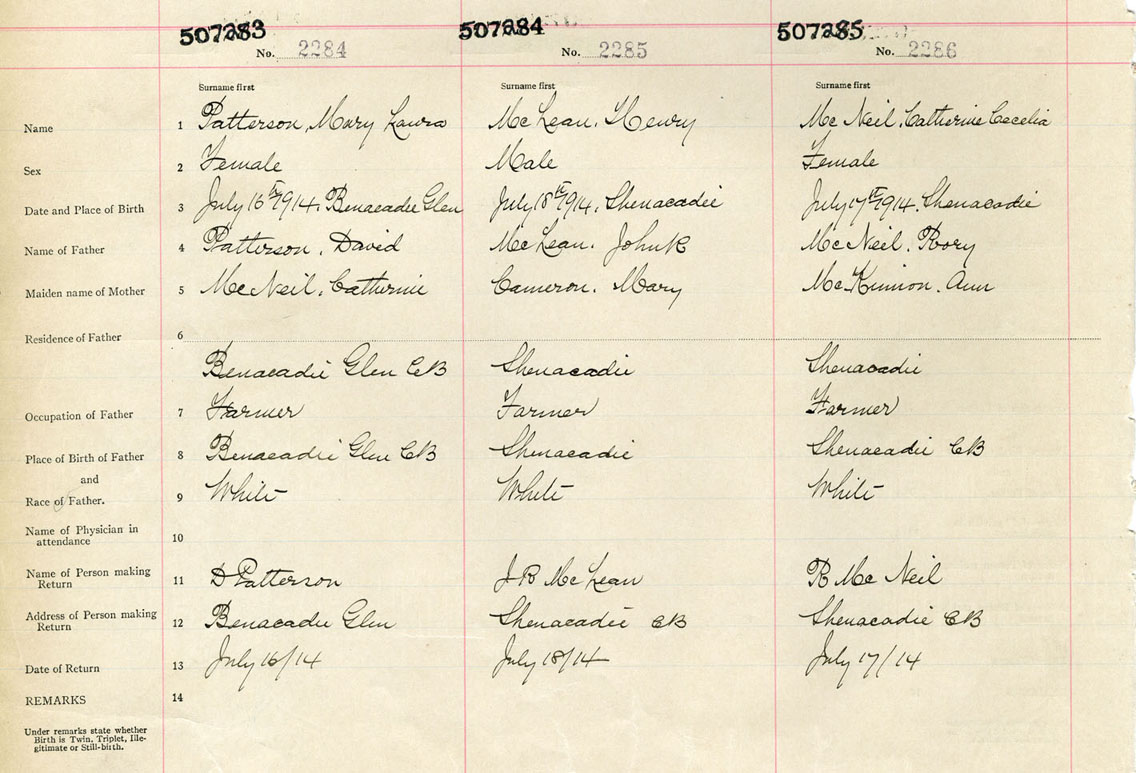 507283 507284 507285
No. 2284 No. 2285 No. 2286
Surname first Surname first Surname first
Name 1 Patterson, Mary Laura McLean, Henry McNeil, Catherine Cecelia
Sex 2 Female Male Female
Date and Place of Birth 3 July 16th 1914, Benacadie Glen July 18th 1914, Shenacadie July 17th 1914, Shenacadie
Name of Father 4 Patterson, David McLean, John R McNeil, Rory
Maiden name of Mother 5 McNeil, Catherine Cameron, Mary McKinnon, Ann
Residence of Father 6
Benacadie Glen CB Shenacadie Shenacadie
Occupation of Father 7 Farmer Farmer Farmer
Place of Birth of Father 8 Benacadie Glen CB Shenacadie Shenacadie CB
and
Race of Father. 9 White White White
Name of Physician in
attendance 10
Name of Person making
Return 11 D Patterson J R McLean R McNeil
Address of Person making
Return 12 Benacadie Glen Shenacadie CB Shenacadie CB
Date of Return 13 July 16/14 July 18/14 July 17/14
REMARKS 14
Under remarks state whether
Birth is Twin, Triplet, Ille-
gitimate or Still-birth.